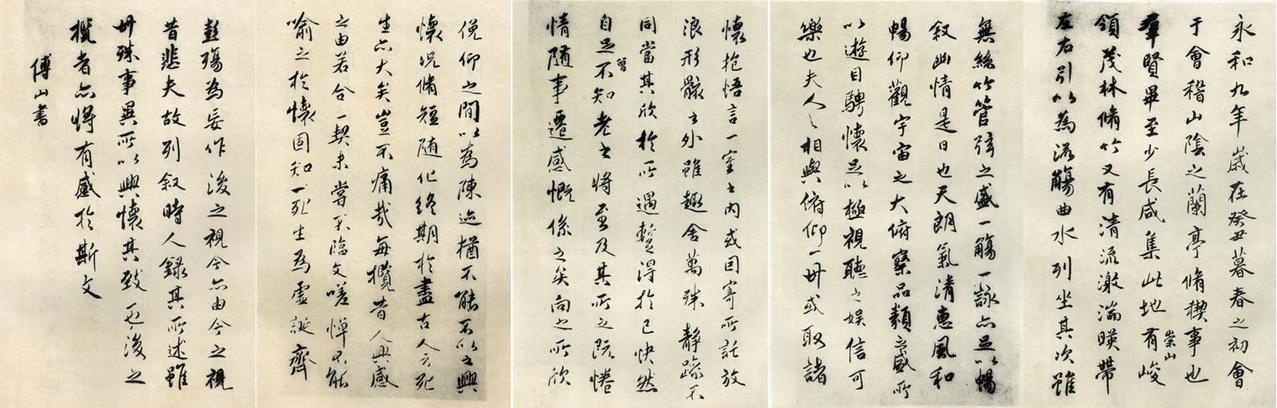 永和九年歲在癸丑暮春之初會
于會稽山陰之蘭亭脩稧事也
羣賢畢至少長咸集此地有崇山峻
領茂林脩竹又有清流激湍暎帶
左右引以為流觴曲水列坐其次雖
無絲竹管弦之盛一觴一詠亦足以暢
叙幽情是日也天朗氣清惠風和
暢仰觀宇宙之大俯察品類之盛所
以遊目騁懷足以極視聽之娛信可
樂也夫人之相與俯仰一世或取諸
懷抱悟言一室之內或因寄所託放
浪形骸之外雖趣舍萬殊靜躁不
同當其欣於所遇蹔得於己快然
自足曾不知老之將至及其所之既惓
情隨事遷感慨係之矣向之所欣
俛仰之間以為陳迹猶不能不以之興
懷況脩短隨化終期於盡古人云死
生亦大矣豈不痛哉每攬昔人興感
之由若合一契未嘗不臨文嗟悼不能
喻之於懷固知一死生為虛誕齊
彭殤為妄作後之視今亦由今之視
昔悲夫故列叙時人錄其所述雖
世殊事異所以興懷其致一也後之
攬者亦將有感於斯文
傅山書